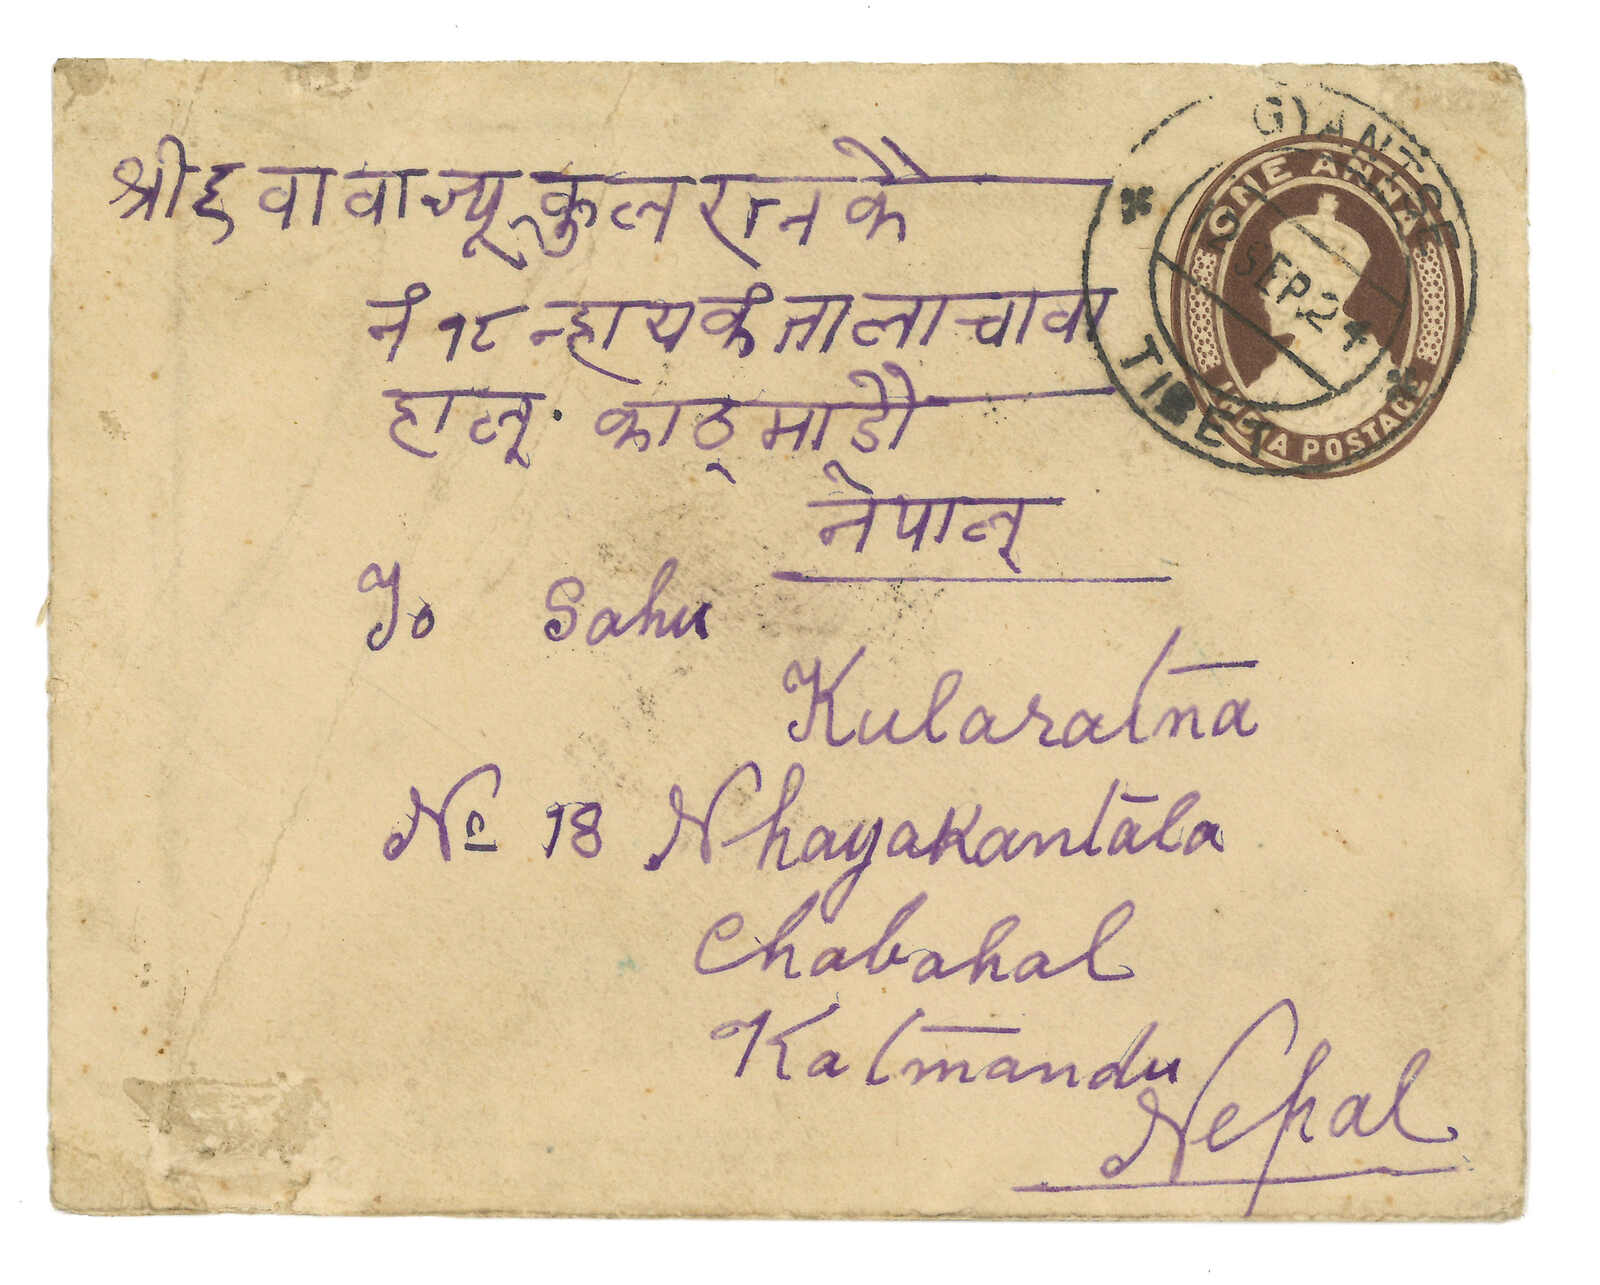 GYANTSE
TIBET
SEP.24
ONE ANNA
INDIA POSTAGE
श्री ६ वावाज्यू कुलरत्न के
नं १८ न्हायकंतालाचावा
हाल्. काठ्माडौ
नेपाल्
To Sahu
Kularatna
No 18 Nhayakantala
Chabahal
Katmandu
Nepal